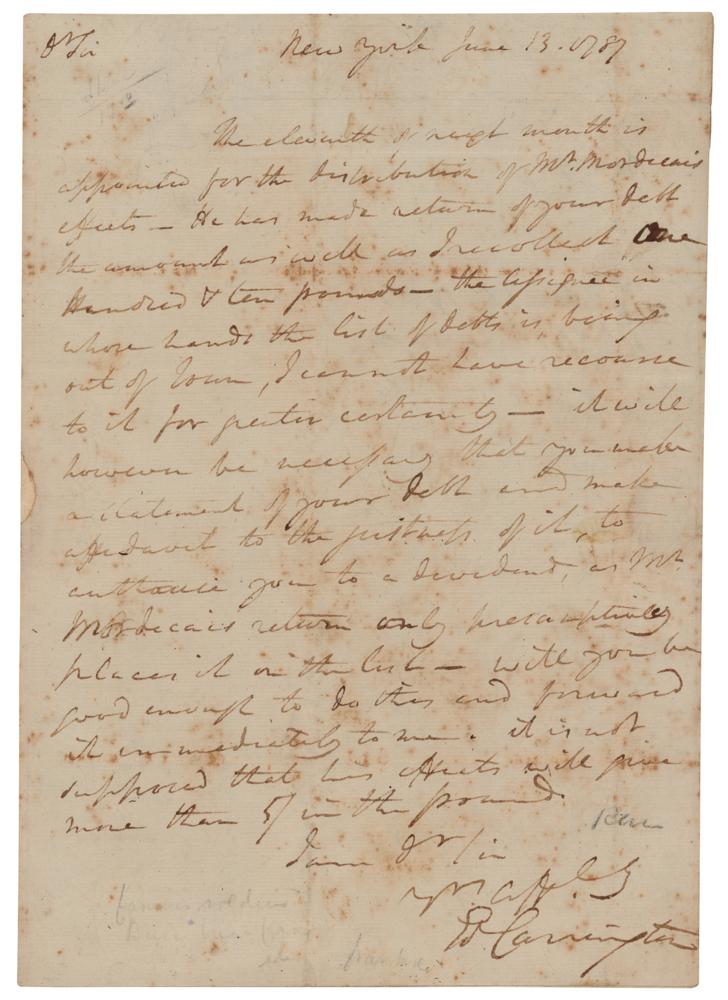 Dr Sir New York June 13. 1787
The eleventh of next month is
appointed for the distribution of Mr. Mordecais
effects — He has made return of your debt
the amount as well as I recollect One
Hundred & ten pounds — the assignee in
whose hands the list of debts is, being
out of Town, I cannot have recourse
to it for greater certainty — it will
however be necessary that you make
a statement of your debt and make
affidavit to the justness of it, to
authorise you to a dividend, as Mr.
Mordecais return only presumptively
places it on the list — will you be
good enough to do this and forward
it immediately to me. it is not
supposed that his effects will give
more than 5/ in the pound.
I am Dr Sir
Yr. affe.
Ed. Carrington